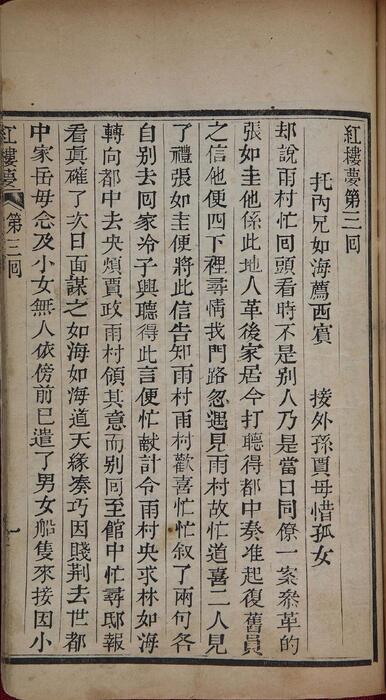 紅樓夢第三回
托內兄如海薦西賓 接外孫賈母惜孤女
却說雨村忙回頭看時不是别人乃是當日同僚一案叅革的
張如圭他係此地人革後家居今打聽得都中奏准起復舊員
之信他便四下裡尋情找門路忽遇見雨村故忙道喜二人見
了禮張如圭便將此信告知雨村雨村歡喜忙忙叙了兩句各
自别去回家冷子興聽得此言便忙献計令雨村央求林如海
轉向都中去央煩賈政雨村領其意而别回至館中忙尋邸報
看真確了次日面謀之如海如海道天緣凑巧因賤荆去世都
中家岳母念及小女無人依傍前已遣了男女船隻來接因小
紅樓夢 第三回 一